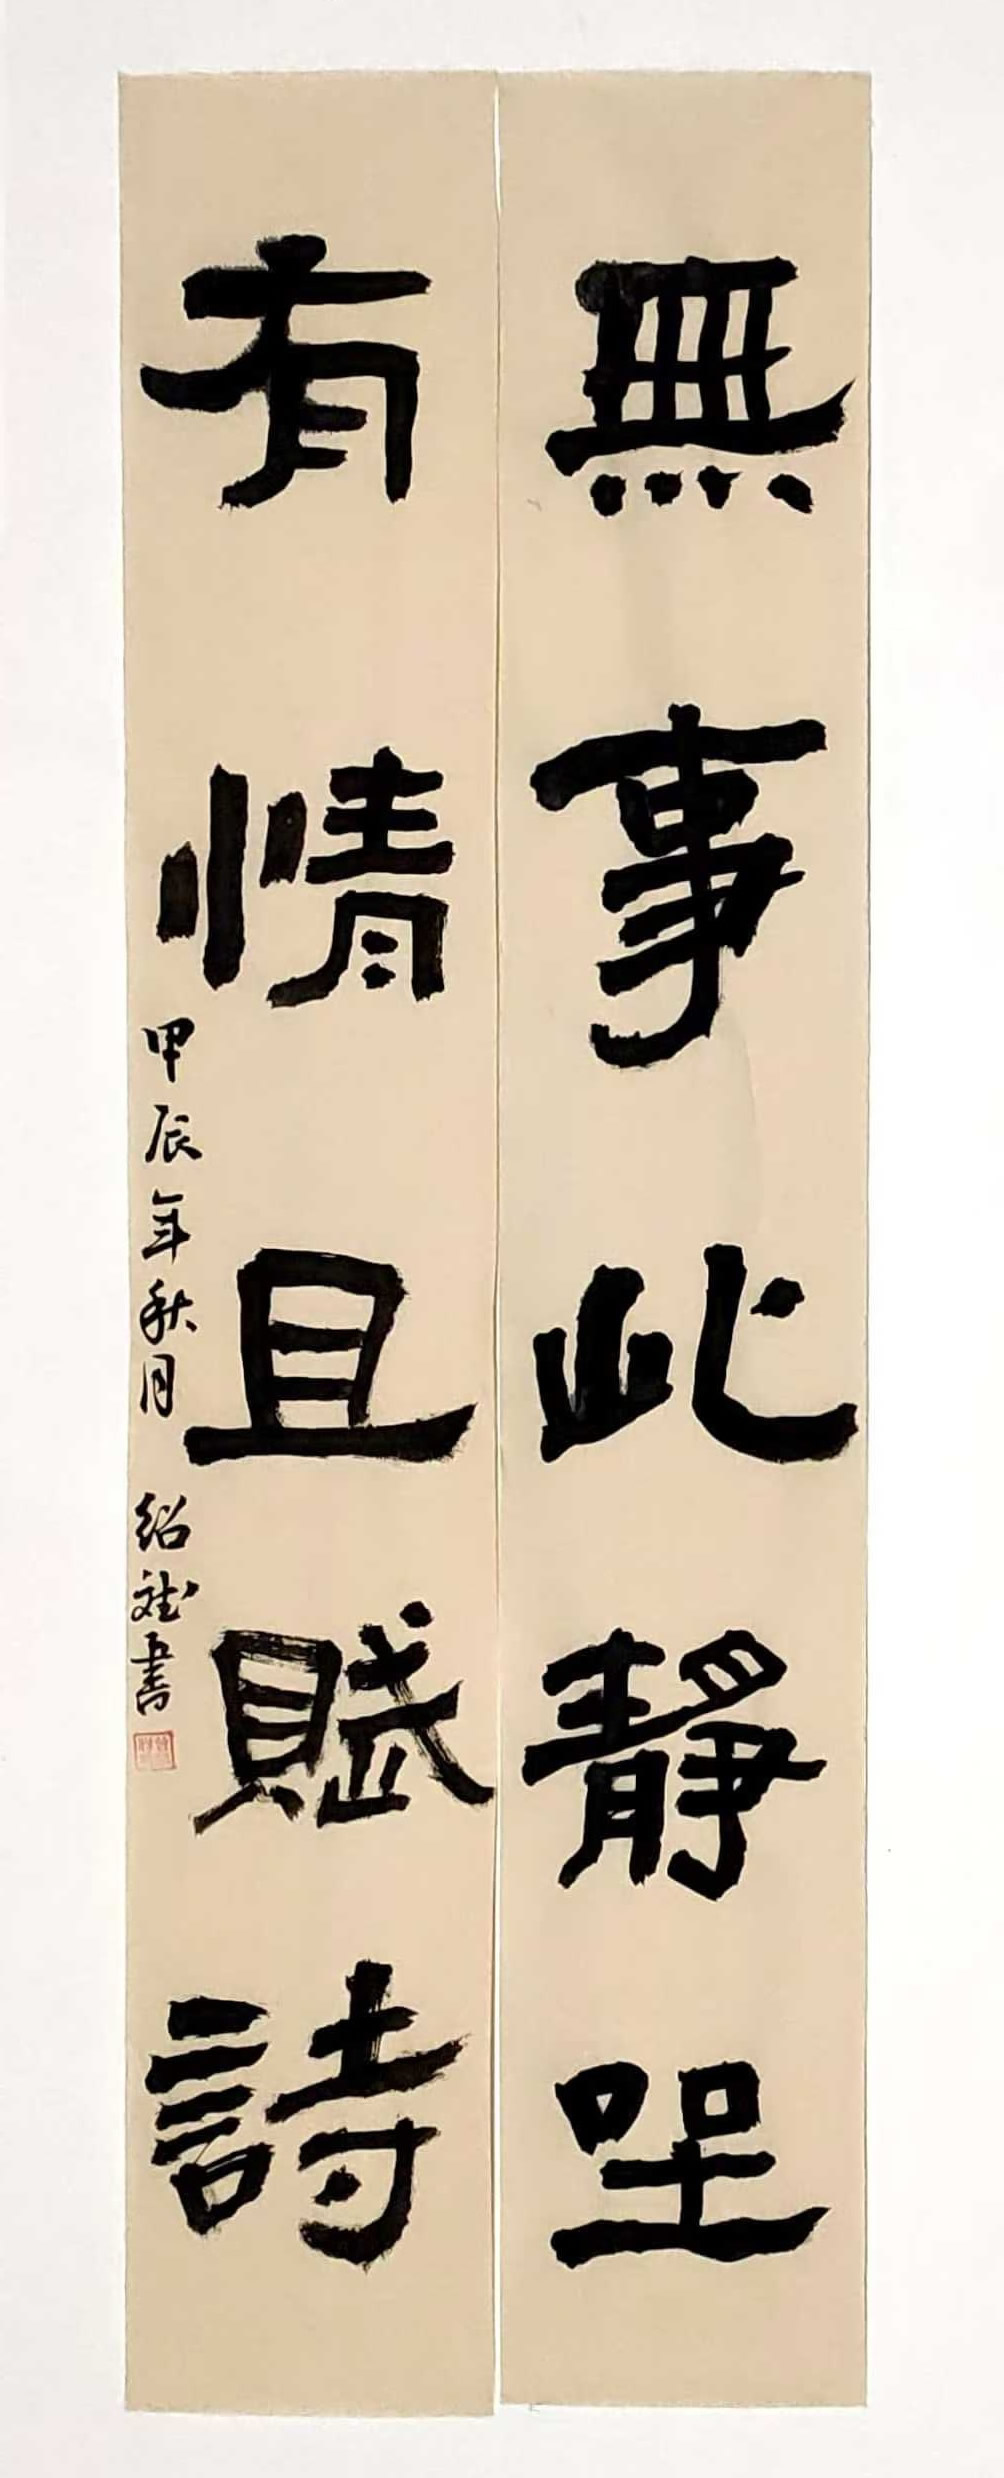 無事此靜坐
有情且賦詩
甲辰年秋月 绍斌書